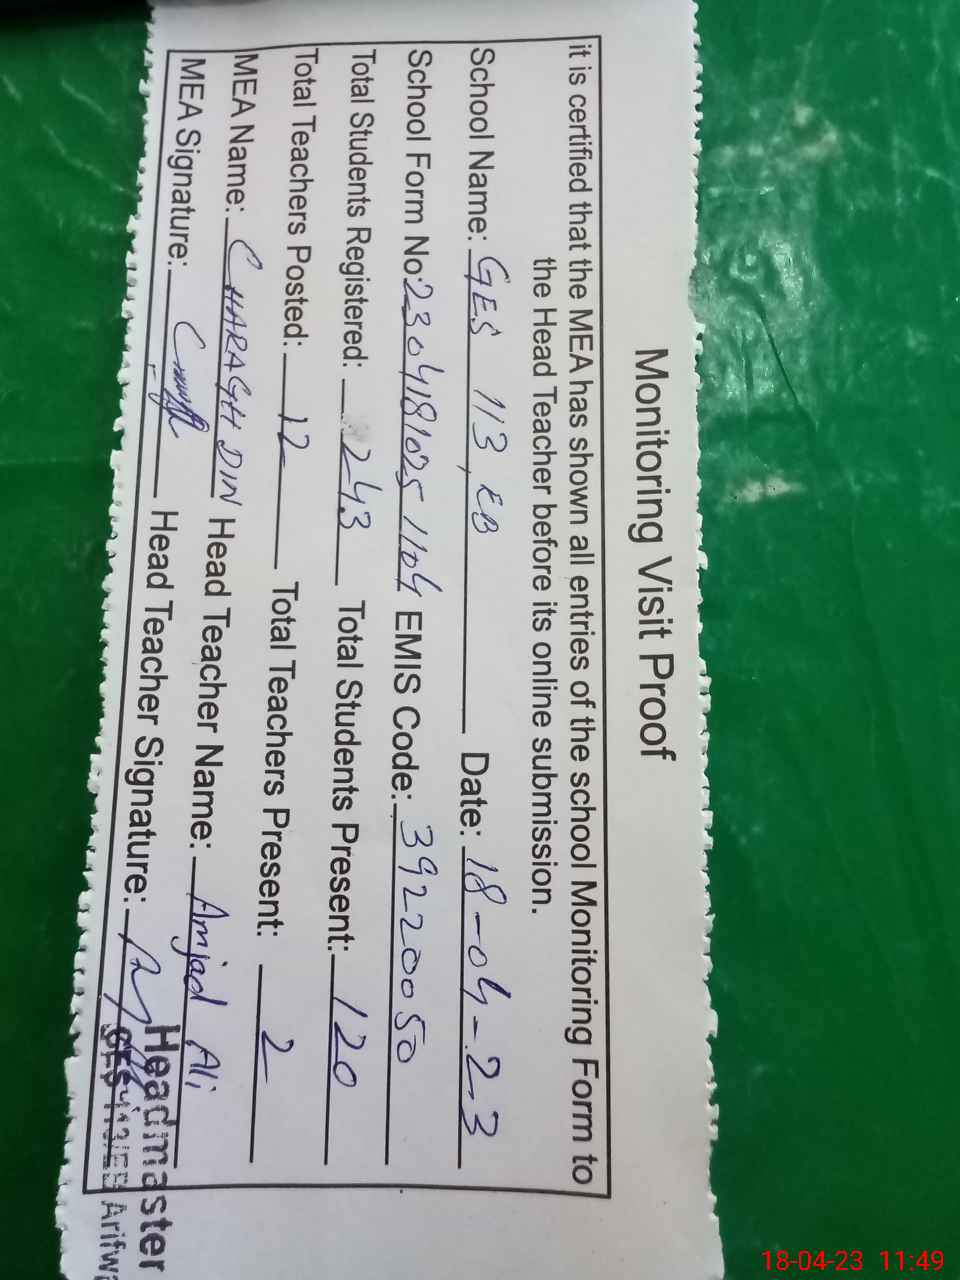 Monitoring Visit Proof
it is certified that the MEA has shown all entries of the school Monitoring Form to
the Head Teacher before its online submission.
School Name: GES 113, EB Date: 18-04-23
School Form No: 2304181025 1104 EMIS Code: 39220050
Total Students Registered: 243 Total Students Present: 120
Total Teachers Posted: 12 Total Teachers Present: 2
MEA Name: CHARAGH DIN Head Teacher Name: Amjad Ali
MEA Signature: Head Teacher Signature:
Headmaster
GES 113/EB Arifwa
18-04-23 11:49